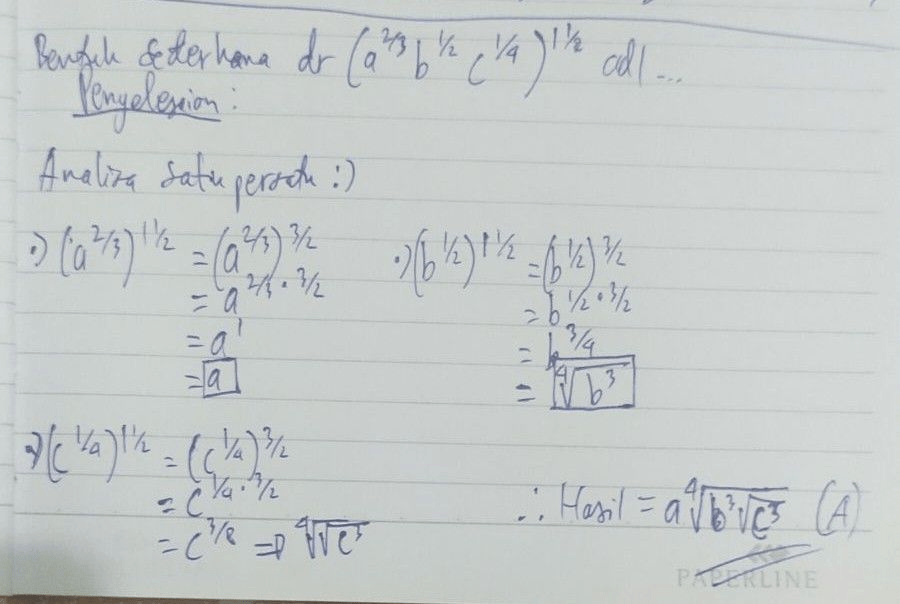 Bentuk sederhana dr (a^2/3 b^1/2 c^1/4)^1 1/2 adl...
Penyelesaian:
Analisa satu persatu :)
•) (a^2/3)^1 1/2 = (a^2/3)^3/2
= a^2/3 • 3/2
= a^1
= a
•) (b^1/2)^1 1/2 = (b^1/2)^3/2
= b^1/2 • 3/2
= b^3/4
= ⁴√b³
•) (c^1/4)^1 1/2 = (c^1/4)^3/2
= c^1/4 • 3/2
= c^3/8 => ⁴√√c³
∴ Hasil = a ⁴√(b³√c³) (A)
PAPERLINE